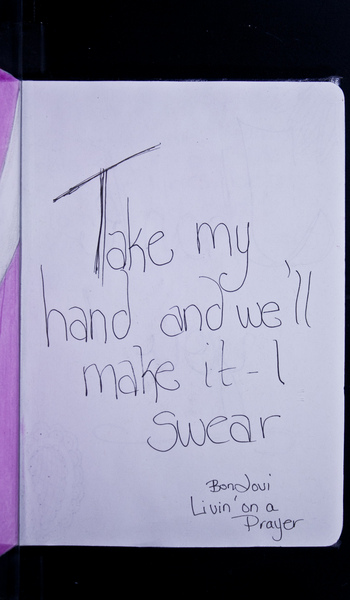 Take my
hand and we'll
make it - I
swear
Bon Jovi
Livin' on a
Prayer